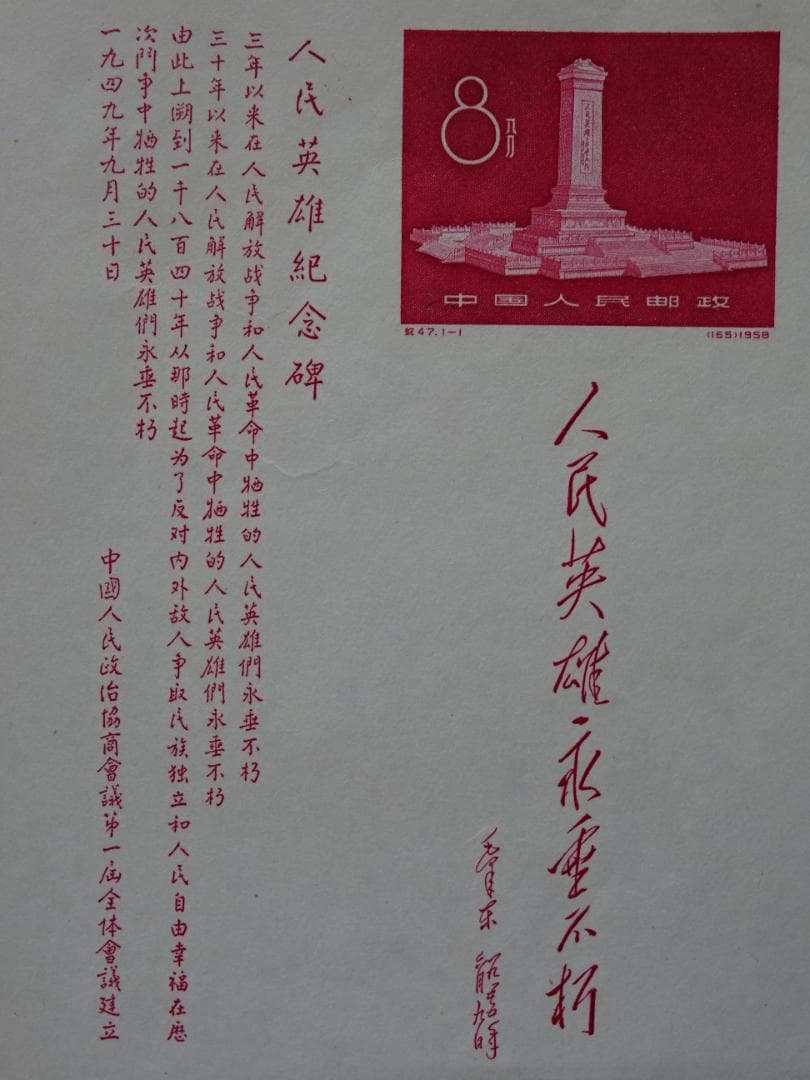 8分
中国人民邮政
紀47.1-1
(165)1958
人民英雄永垂不朽
毛澤东
人民英雄紀念碑
三年以来在人民解放战争和人民革命中牺牲的人民英雄們永垂不朽
三十年以来在人民解放战争和人民革命中牺牲的人民英雄們永垂不朽
由此上溯到一千八百四十年从那時起为了反对内外敌人争取民族独立和人民自由幸福在歷
次鬥争中牺牲的人民英雄們永垂不朽
一九四九年九月三十日
中國人民政治協商會議第一届全体會議建立